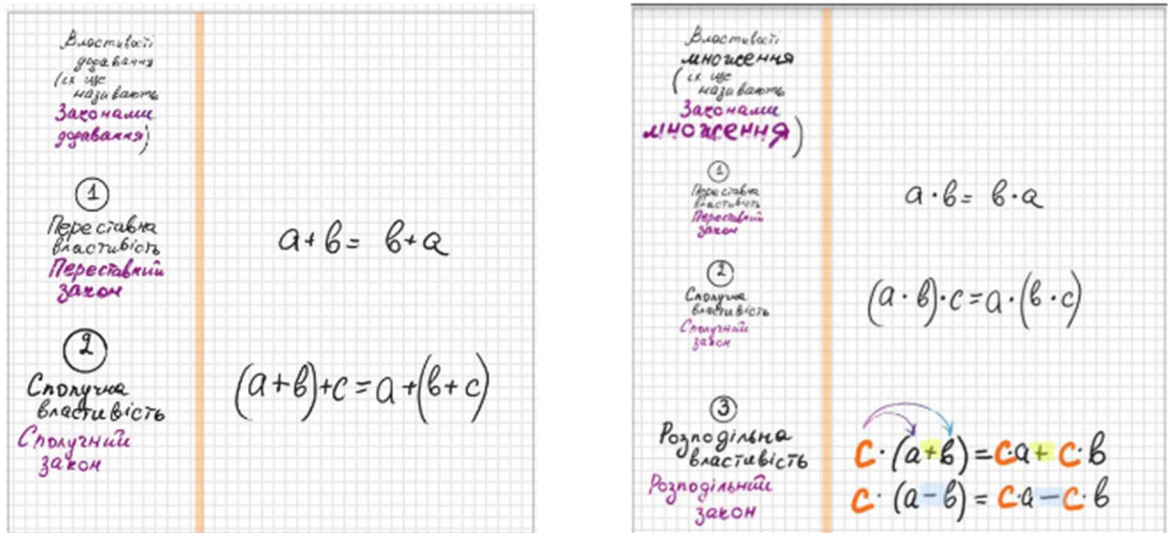 Властивості
додавання
(їх ще
називають
Законами
додавання)
1
Переставна
властивість
Переставний
закон
a + b = b + a
2
Сполучна
властивість
Сполучний
закон
(a + b) + c = a + (b + c)
Властивості
множення
(їх ще
називають
Законами
множення)
1
Переставна
властивість
Переставний
закон
a · b = b · a
2
Сполучна
властивість
Сполучний
закон
(a · b) · c = a · (b · c)
3
Розподільна
властивість
Розподільний
закон
c · (a + b) = c · a + c · b
c · (a − b) = c · a − c · b